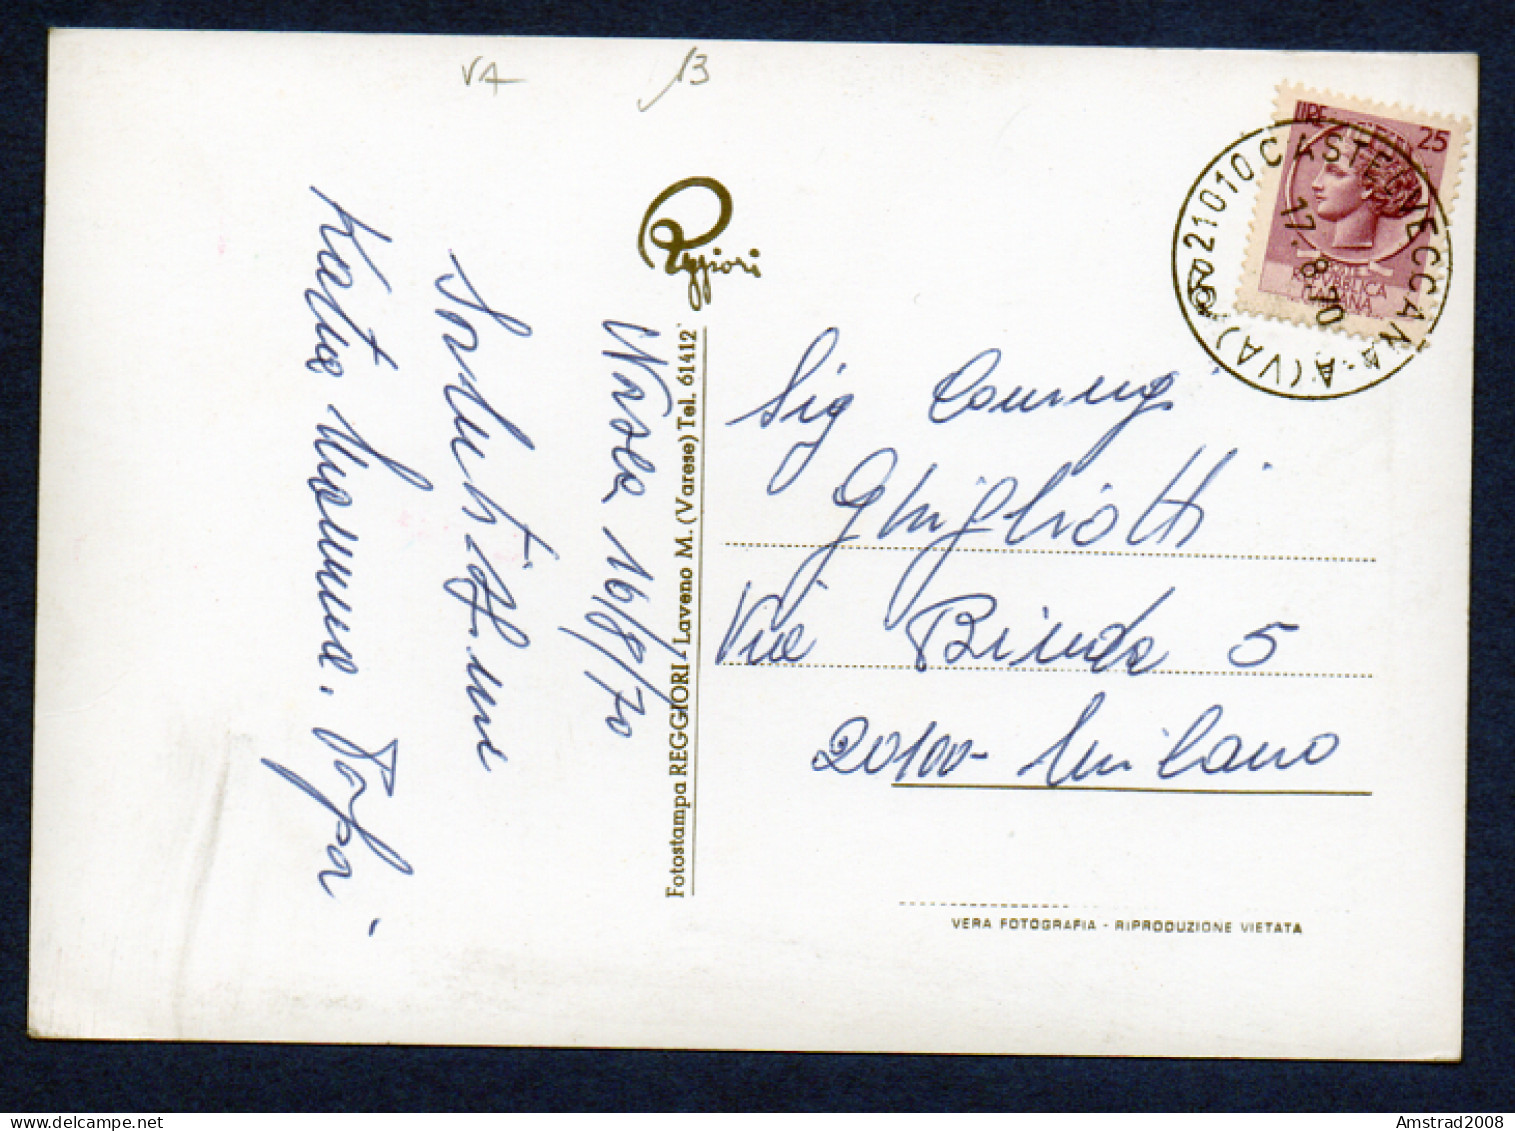 VA
13
Reggiori
LIRE 25
POSTE
REPUBBLICA
ITALIANA
21010 CASTELVECCANA A (VA)
17.8.70
Fotostampa REGGIORI - Laveno M. (Varese) Tel. 61412
16/8/70
Katia Mamma. Papà
Sig
Ghigliotti
Via Binda 5
20100 - Milano
VERA FOTOGRAFIA - RIPRODUZIONE VIETATA
Amstrad2008